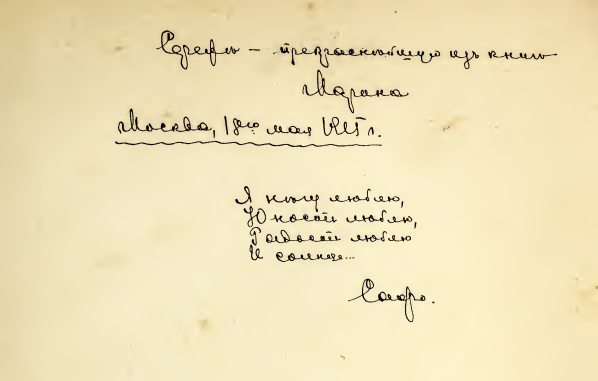 Сереже — прекраснейшую из книг
Марина
Москва, 18го мая 1915 г.
Я негу люблю,
Юность люблю,
Радость люблю
И солнце...
Сафо.